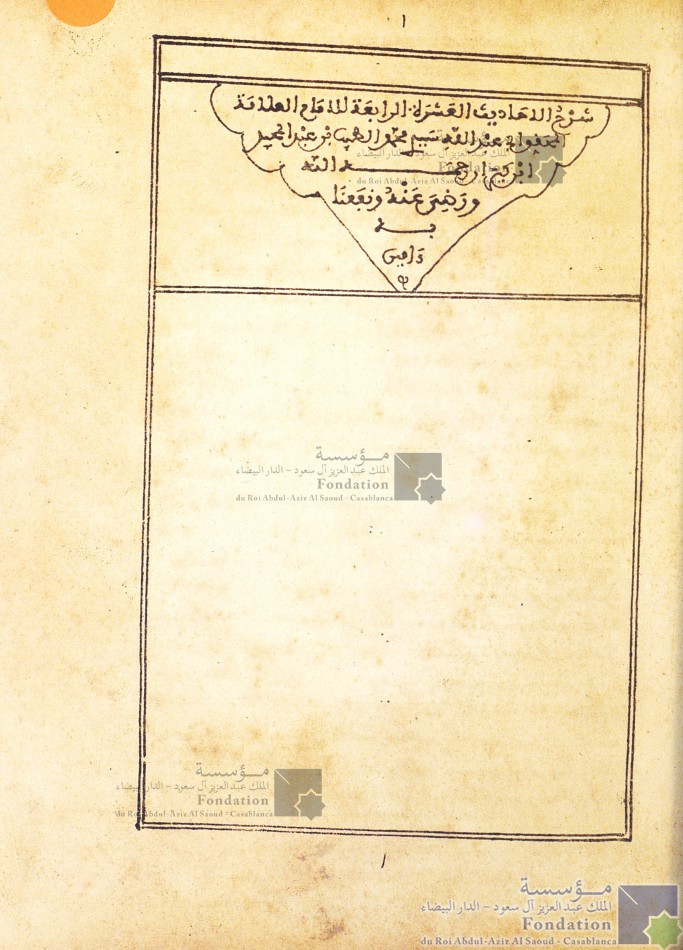 ١
شرح الاحاديث العشرة الرابعة للامام العلامة
عبد الله سيدي محمد الطيب بن عبد المجيد
ابن كيران رحمه الله
ورضي عنه ونفعنا
به
ءامين
مؤسسة
الملك عبد العزيز آل سعود - الدار البيضاء
Fondation
du Roi Abdul-Aziz Al Saoud - Casablanca
مؤسسة
الملك عبد العزيز آل سعود - الدار البيضاء
Fondation
du Roi Abdul-Aziz Al Saoud - Casablanca
مؤسسة
الملك عبد العزيز آل سعود - الدار البيضاء
Fondation
du Roi Abdul-Aziz Al Saoud - Casablanca
١
مؤسسة
الملك عبد العزيز آل سعود - الدار البيضاء
Fondation
du Roi Abdul-Aziz Al Saoud - Casablanca